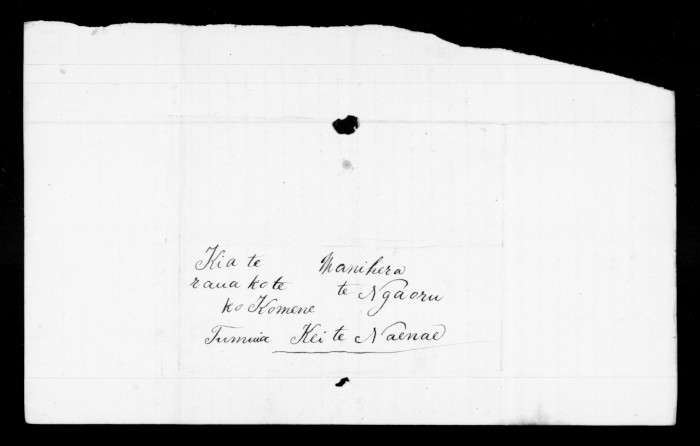 Kia te Manihera
raua ko te te Ngaoru
ko Komene
Tumiua Kei te Naenae